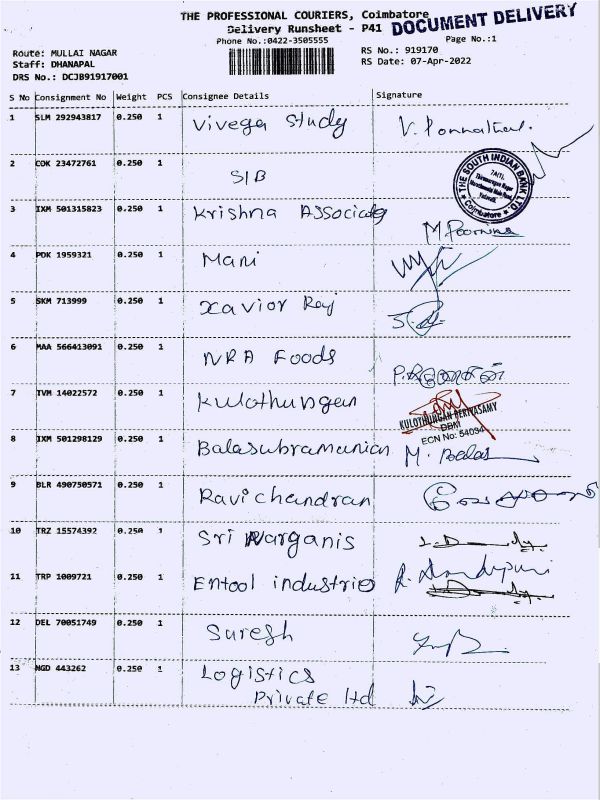 THE PROFESSIONAL COURIERS, Coimbatore
DOCUMENT DELIVERY
Delivery Runsheet - P41
Phone No.:0422-3505555
Page No.:1
Route: MULLAI NAGAR
Staff: DHANAPAL
DRS No.: DCJB91917001
RS No.: 919170
RS Date: 07-Apr-2022
S No Consignment No Weight PCS Consignee Details Signature
1 SLM 292943817 0.250 1 Vivega Study
2 COK 23472761 0.250 1 SIB
THE SOUTH INDIAN BANK LTD.
Coimbatore
3 IXM 501315823 0.250 1 Krishna Associates M. Poornima
4 PDK 1959321 0.250 1 Mani
5 SKM 713999 0.250 1 Xavior Raj
6 MAA 566413091 0.250 1 NRA Foods
7 TVM 14022572 0.250 1 Kulothungan
KULOTHUNGAN PERIYASAMY
DBM
ECN No: 54034
8 IXM 501298129 0.250 1 Balasubramanian
9 BLR 490750571 0.250 1 Ravichandran
10 TRZ 15574392 0.250 1 Sri Narganis
11 TRP 1009721 0.250 1 Entool industries
12 DEL 70051749 0.250 1 Suresh
13 NGD 443262 0.250 1 Logistics
Private ltd